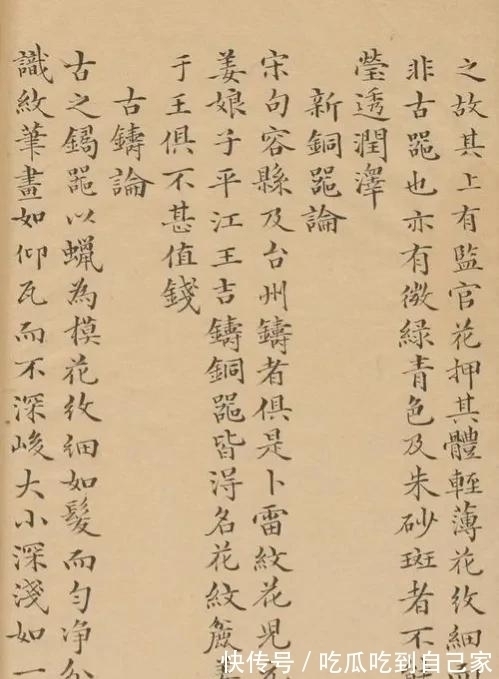 之故其上有監官花押其體輕薄花紋細而
非古器也亦有微綠青色及朱砂斑者不能
瑩透潤澤
新銅器論
宋句容縣及台州鑄者俱是卜雷紋花兒亦
姜娘子平江王吉鑄銅器皆得名花紋麄姜
于王俱不甚值錢
古鑄論
古之鑄器以蠟為模花紋細如髮而勻净分
識紋筆畫如仰瓦而不深峻大小深淺如一
快传号/吃瓜吃到自己家